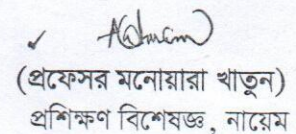 (প্রফেসর মনোয়ারা খাতুন)
প্রশিক্ষণ বিশেষজ্ঞ, নায়েম